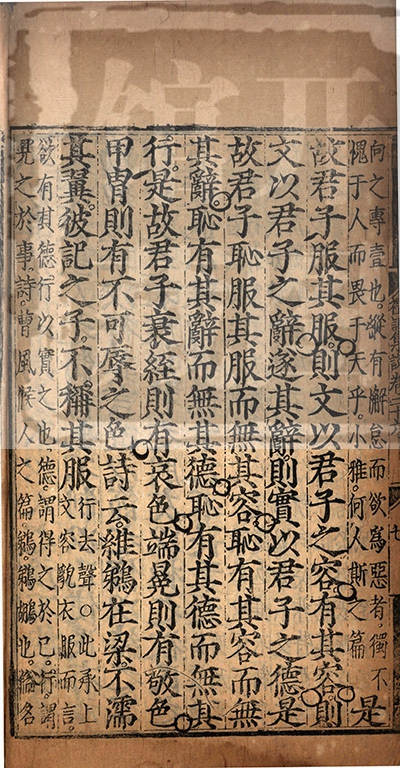 向之專壹也。縱有懈怠而欲為惡者。獨不
愧于人而畏于天乎。小雅。何人斯之篇
是
故君子服其服。則文以君子之容。有其容則
文以君子之辭。遂其辭。則實以君子之德。是
故君子恥服其服而無其容。恥有其容而無
其辭。恥有其辭而無其德。恥有其德而無其
行。是故君子衰絰則有哀色。端冕則有敬色
甲冑則有不可辱之色。詩云。維鵜在梁。不濡
其翼。彼記之子。不稱其服
行去聲○此承上
文容觀衣服而言。
欲有其德行以實之也。德謂得之於己。行謂
見之於事。詩。曹風候人之篇。鵜。鵜鶘也。俗名
七